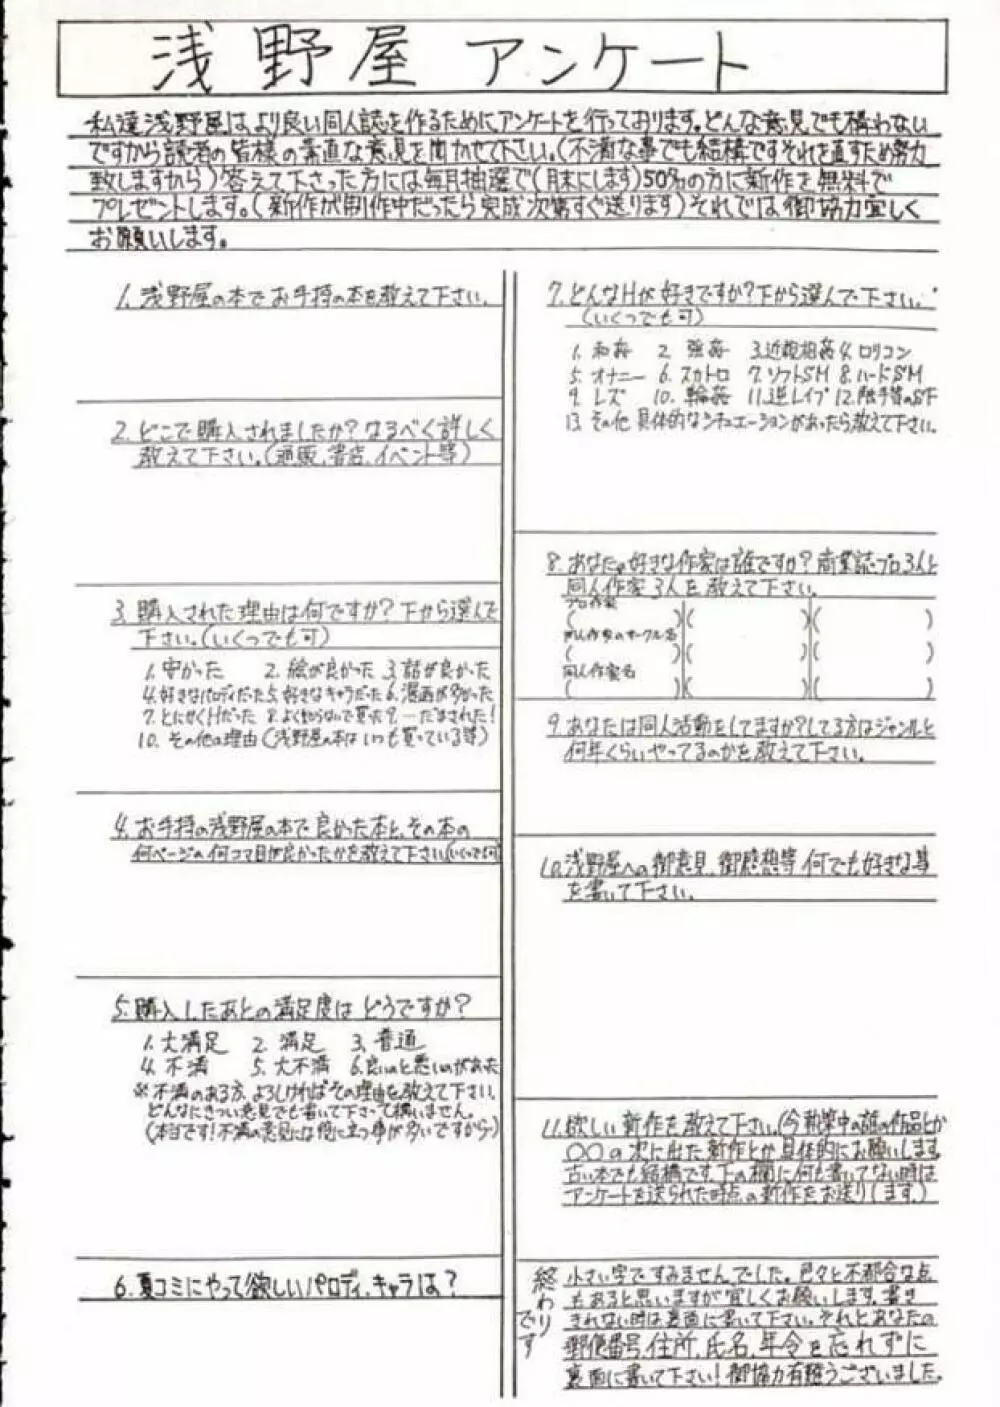 浅野屋 アンケート
私達浅野屋はより良い同人誌を作るためにアンケートを行っております。どんな意見でも構わない
ですから読者の皆様の素直な意見を聞かせて下さい。(不満な事でも結構ですそれを直すため努力
致しますから)答えて下さった方には毎月抽選で(月末にします)50名の方に新作を無料で
プレゼントします。(新作が制作中だったら完成次第すぐ送ります)それでは御協力宜しく
お願いします。
1. 浅野屋の本でお手持の本を教えて下さい。
2. どこで購入されましたか?なるべく詳しく
教えて下さい。(通販、書店、イベント等)
3. 購入された理由は何ですか?下から選んで
下さい。(いくつでも可)
1. 安かった 2. 絵が良かった 3. 話が良かった
4. 好きなパロディだった 5. 好きなキャラだった 6. 漫画が多かった
7. とにかくHだった 8. よく知らないで買った 9. 一だまされた!
10. その他の理由(浅野屋の本はいつも買っている等)
4. お手持の浅野屋の本で良かった本と、その本の
何ページの何コマ目が良かったかを教えて下さい(いくつでも可)
5. 購入したあとの満足度はどうですか?
1. 大満足 2. 満足 3. 普通
4. 不満 5. 大不満 6. 良いのと悪いのがあった
※不満のある方、よろしければその理由を教えて下さい。
どんなにきつい意見でも書いて下さって構いません。
(本当です!不満の意見には役に立つ事が多いですから)
6. 夏コミにやって欲しいパロディ、キャラは?
7. どんなHが好きですか?下から選んで下さい。
(いくつでも可)
1. 和姦 2. 強姦 3. 近親相姦 4. ロリコン
5. オナニー 6. スカトロ 7. ソフトSM 8. ハードSM
9. レズ 10. 輪姦 11. 逆レイプ 12. 触手等のSF
13. その他 具体的なシチュエーションがあったら教えて下さい。
8. あなたの好きな作家は誰ですか?商業誌プロ3人と
同人作家3人を教えて下さい。
プロ作家
( )( )( )
同人作家のサークル名
( )( )( )
同人作家名
( )( )( )
9. あなたは同人活動をしてますか?してる方はジャンルと
何年くらいやってるのかを教えて下さい。
10. 浅野屋への御意見、御感想等何でも好きな事
を書いて下さい。
11. 欲しい新作を教えて下さい。(今執筆中の誰の作品とか
〇〇の次に出た新作とか具体的にお願いします。
古い本でも結構です。下の欄に何も書いてない時は
アンケートを送られた時点の新作をお送りします。)
終わりです
小さい字ですみませんでした。色々と不都合な点
もあると思いますが宜しくお願いします。書き
きれない時は裏面に書いて下さい。それとあなたの
郵便番号、住所、氏名、年令を忘れずに
裏面に書いて下さい!御協力有難うございました。